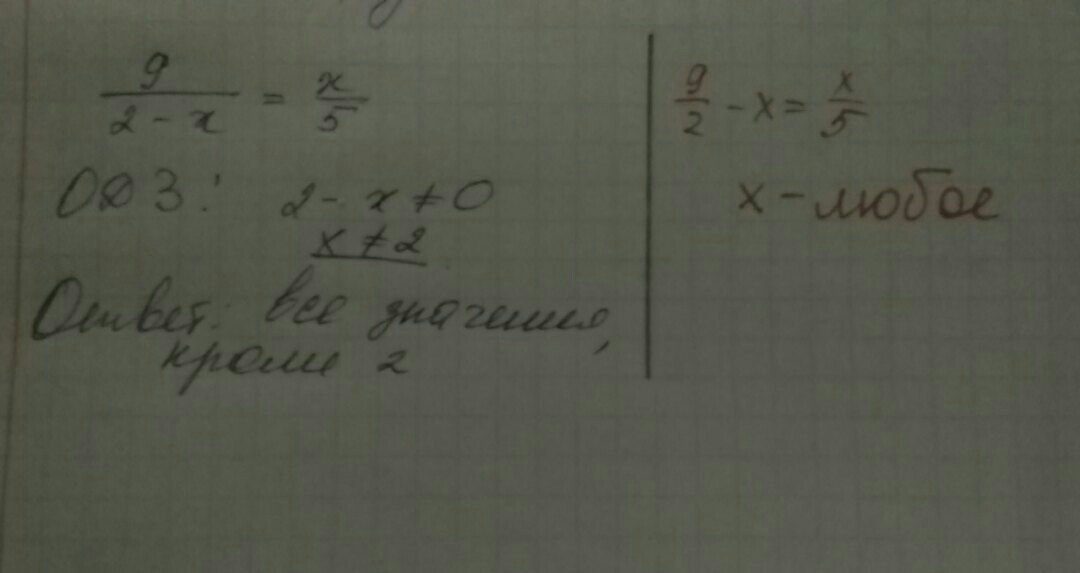 9/(2 - x) = x/5
ОДЗ: 2 - x ≠ 0
x ≠ 2
Ответ: все значения,
кроме 2
9/2 - x = x/5
x - любое